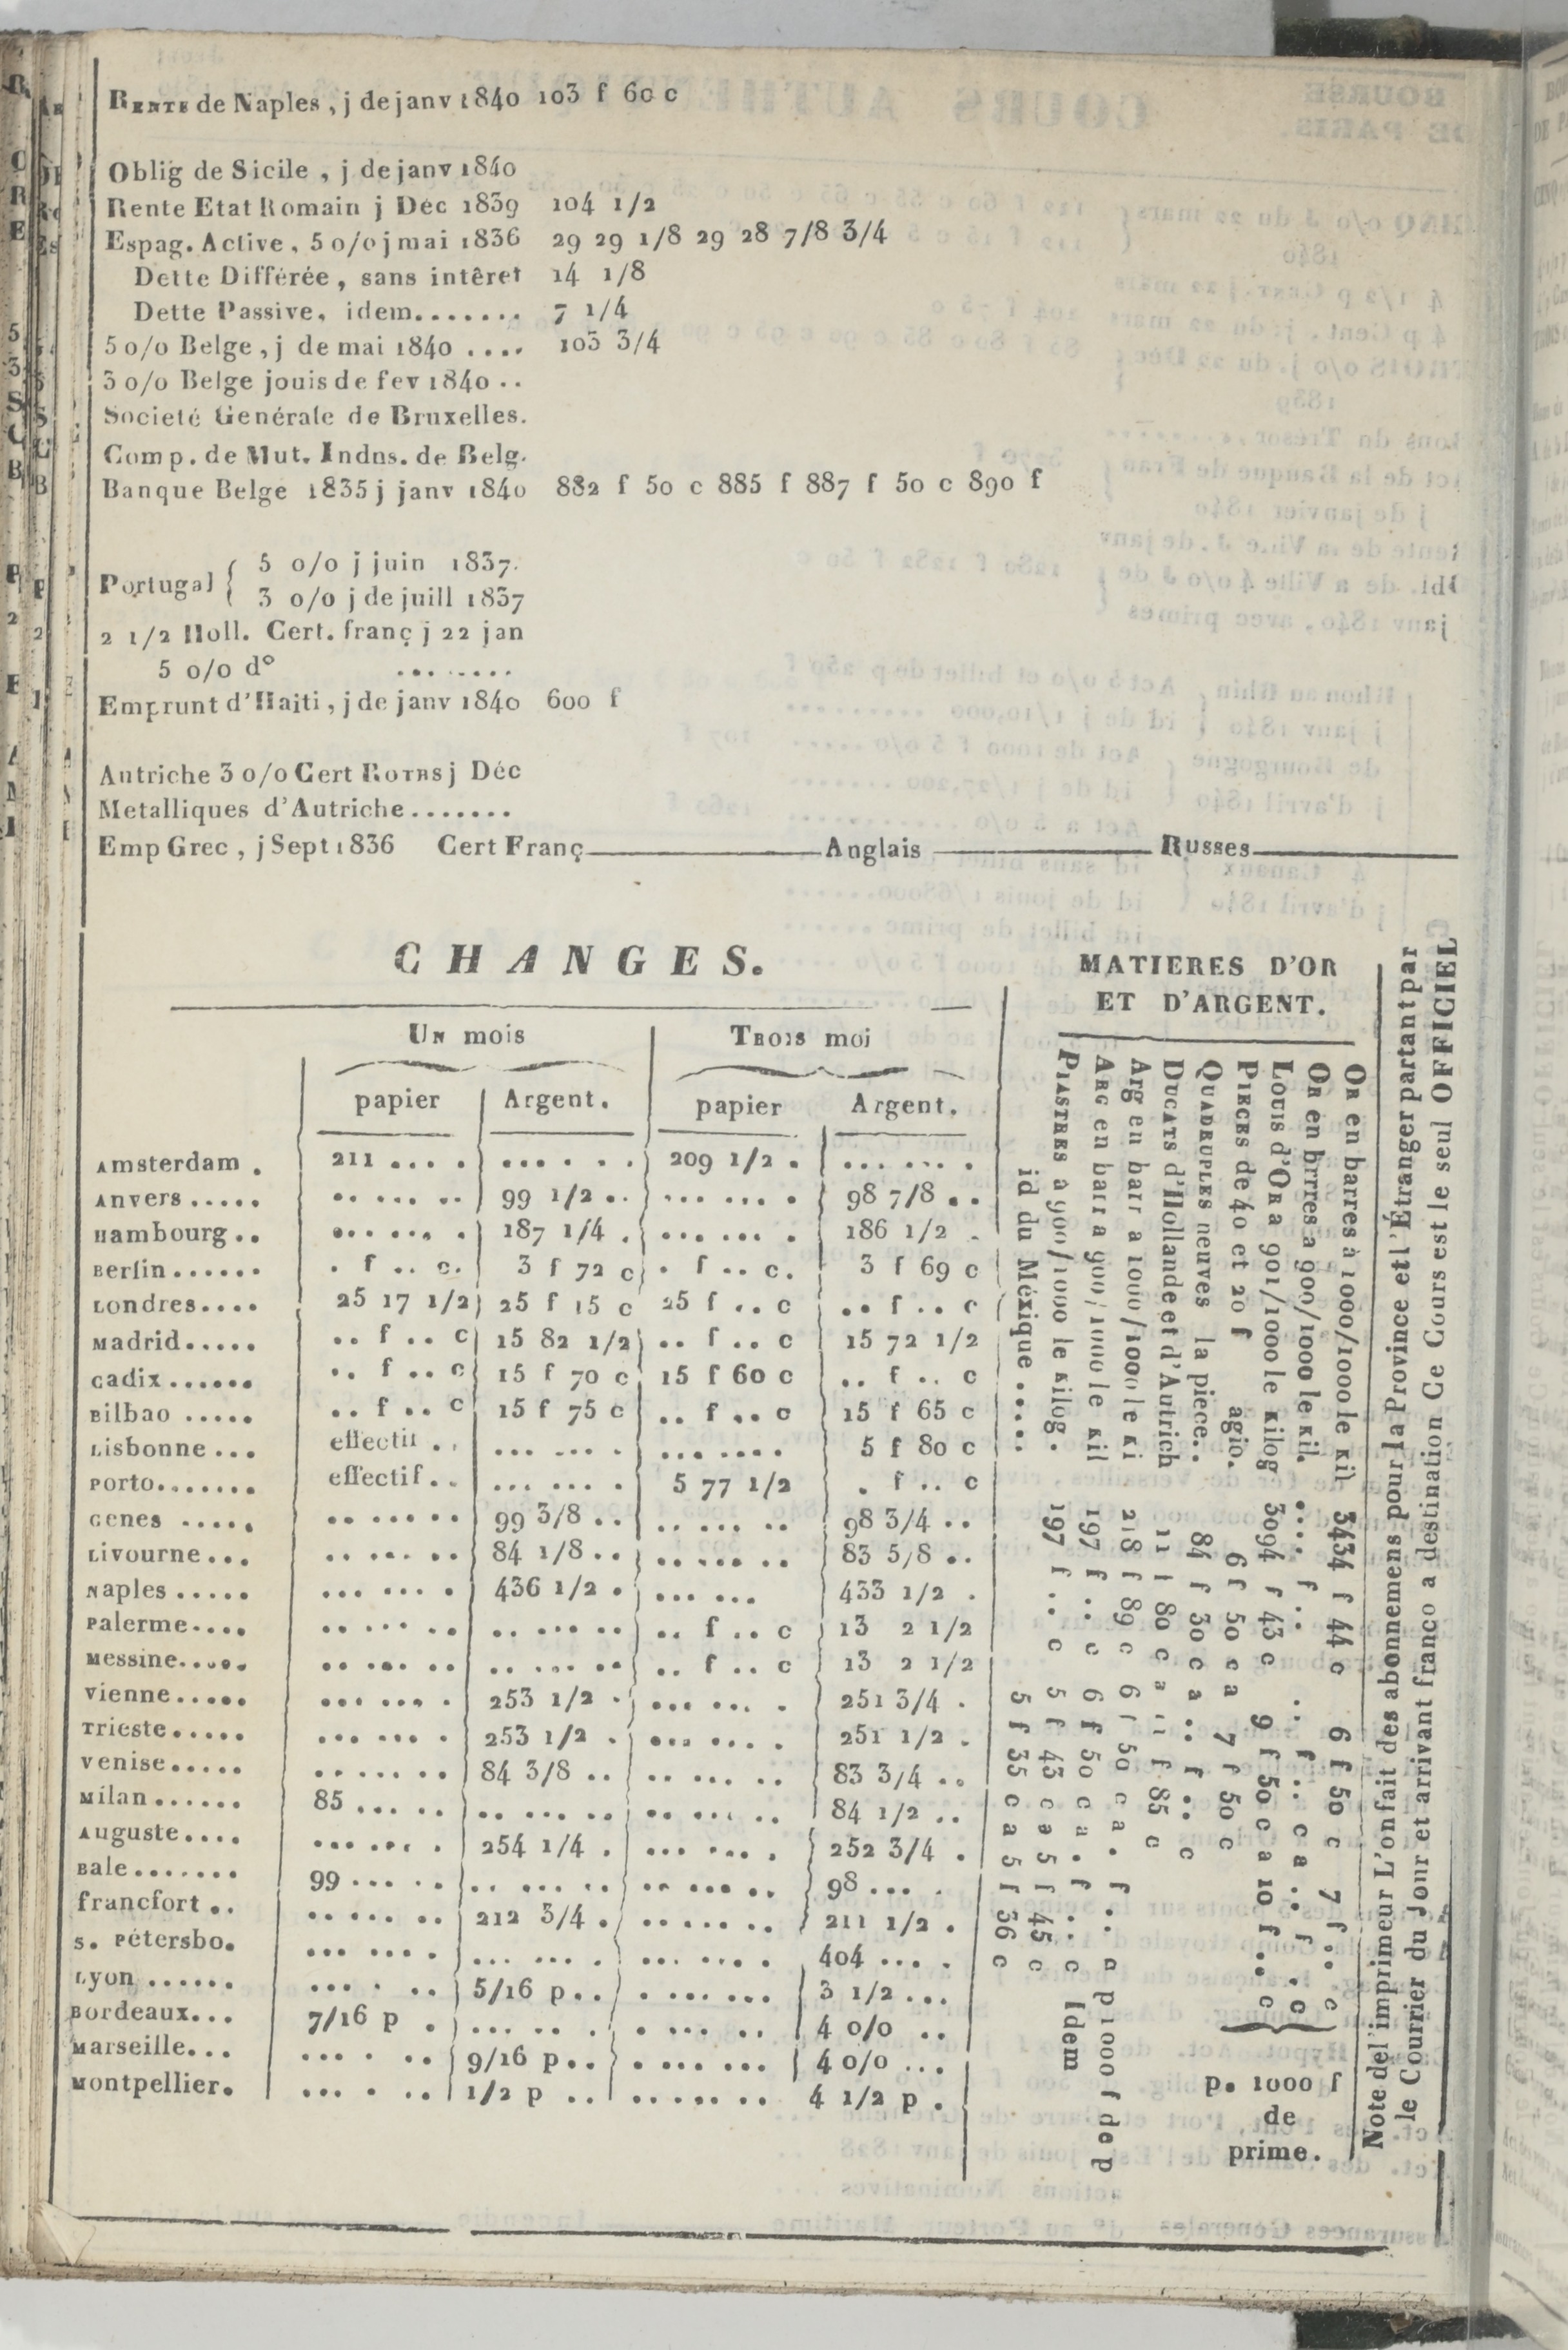 RENTE de Naples , j de janv 1840 103 f 60 c
Oblig de Sicile , j de janv 1840
Rente Etat Romain j Déc 1839 104 1/2
Espag. Active , 5 o/o j mai 1836 29 29 1/8 29 28 7/8 3/4
Dette Différée , sans intêret 14 1/8
Dette Passive, idem....... 7 1/4
5 o/o Belge , j de mai 1840 .... 103 3/4
3 o/o Belge jouis de fev 1840 ..
Societé Genérale de Bruxelles.
Comp. de Mut. Indns. de Belg.
Banque Belge 1835 j janv 1840 882 f 50 c 885 f 887 f 50 c 890 f
Portugal { 5 o/o j juin 1837.
3 o/o j de juill 1837
2 1/2 Holl. Cert. franç j 22 jan
5 o/o d° ........
Emprunt d'Haiti , j de janv 1840 600 f
Autriche 3 o/o Cert ROTHS j Déc
Metalliques d'Autriche.......
Emp Grec , j Sept 1836 Cert Franç Anglais Russes
CHANGES.
UN mois TROIS moi
papier Argent. papier Argent.
Amsterdam . 211 .... ...... 209 1/2 . ......
Anvers ..... ...... 99 1/2 .. ...... 98 7/8 ..
Hambourg .. ...... 187 1/4 . ...... 186 1/2 .
Berlin ...... . f .. c. 3 f 72 c . f .. c. 3 f 69 c
Londres.... 25 17 1/2 25 f 15 c 25 f .. c .. f .. c
Madrid..... .. f .. c 15 82 1/2 .. f .. c 15 72 1/2
Cadix ...... .. f .. c 15 f 70 c 15 f 60 c .. f .. c
Bilbao ..... .. f .. c 15 f 75 c .. f .. c 15 f 65 c
Lisbonne ... effectif .. ...... ...... 5 f 80 c
Porto....... effectif .. ...... 5 77 1/2 . f .. c
Genes ..... ...... 99 3/8 .. ...... 98 3/4 ..
Livourne ... ...... 84 1/8 .. ...... 83 5/8 ..
Naples ..... ...... 436 1/2 . ...... 433 1/2 .
Palerme.... ...... ...... .. f .. c 13 2 1/2
Messine..... ...... ...... .. f .. c 13 2 1/2
Vienne ..... ...... 253 1/2 . ...... 251 3/4 .
Trieste ..... ...... 253 1/2 . ...... 251 1/2 .
Venise ..... ...... 84 3/8 .. ...... 83 3/4 ..
Milan ...... 85 ..... ...... ...... 84 1/2 ..
Auguste.... ...... 254 1/4 . ...... 252 3/4 .
Bale ....... 99 ..... ...... ...... 98 ....
francfort .. ...... 212 3/4 . ...... 211 1/2 .
S. Pétersbo. ...... ...... ...... 404 ....
Lyon ...... ...... 5/16 p.. ...... 3 1/2 ...
Bordeaux... 7/16 p . ...... ...... 4 o/o ..
Marseille... ...... 9/16 p.. ...... 4 o/o ...
Montpellier. ...... 1/2 p .. ...... 4 1/2 p .
MATIERES D'OR
ET D'ARGENT.
OR en barres à 1000/1000 le Kil 3434 f 44 c 6 f 50 c 7 f .. c
OR en brrres a 900/1000 le Kil. .... f .. .. f .. c a .. f .. c
LOUIS d'OR a 901/1000 le Kilog 3094 f 43 c 9 f 50 c a 10 f .. c
PIECES de 40 et 20 f agio. 6 f 50 c a 7 f 50 c
QUADRUPLES neuves la piece.. 84 f 30 c a .. f .. c
DUCATS d'Hollande et d'Autrich 11 f 80 c a 11 f 85 c
Arg en barr a 1000/1000 le Ki 218 f 89 c 6 f 50 c a . f .. a p 1000 f de p
ARG en barr a 900/1000 le Kil 197 f .. c 6 f 50 c a . f .. c Idem
PIASTRES à 900/1000 le Kilog. 197 f .. c 5 f 43 c a 5 f 45 c
id du Méxique .... 5 f 35 c a 5 f 36 c
p. 1000 f
de
prime.
Note del'imprimeur L'on fait des abonnemens pour la Province et l'Étranger partant par
le Courrier du Jour et arrivant franco a destination Ce Cours est le seul OFFICIEL